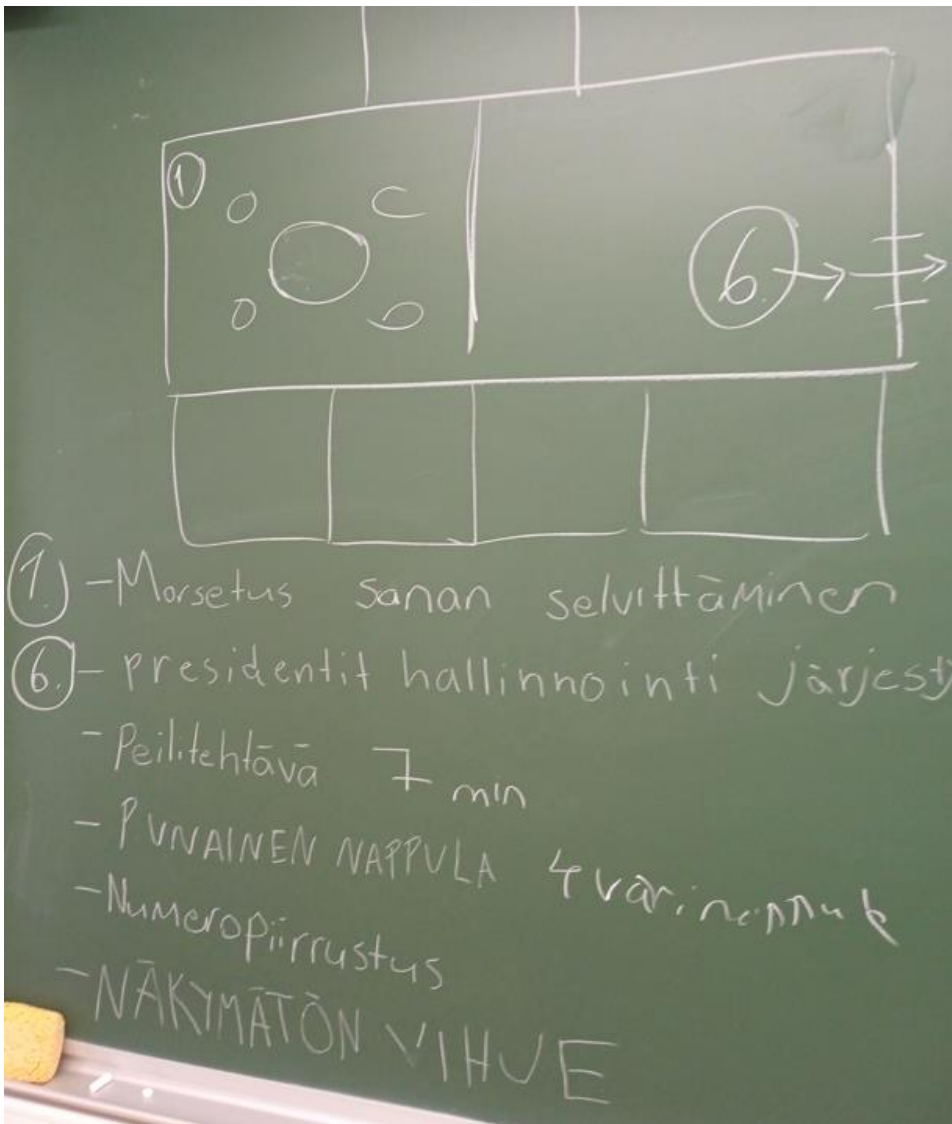 1
6.
1. - Morsetus sanan selvittäminen
6. - presidentit hallinnointi
- Peilitehtävä 7 min
- PUNAINEN NAPPULA 4
- Numeropiirrustus
- NÄKYMÄTÖN VIHJE